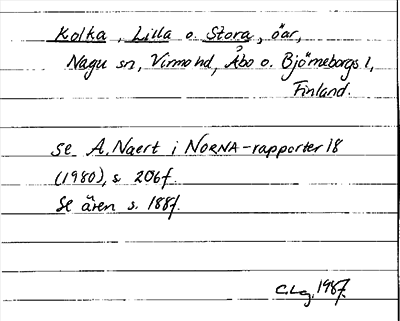 Kolka, Lilla o. Stora, öar,
Nagu sn, Virmo hd, Åbo o. Björneborgs l,
Finland.
se A. Naert i NORNA-rapporter 18
(1980), s. 206f.
Se även s. 188f.
C.Lg. 1987.